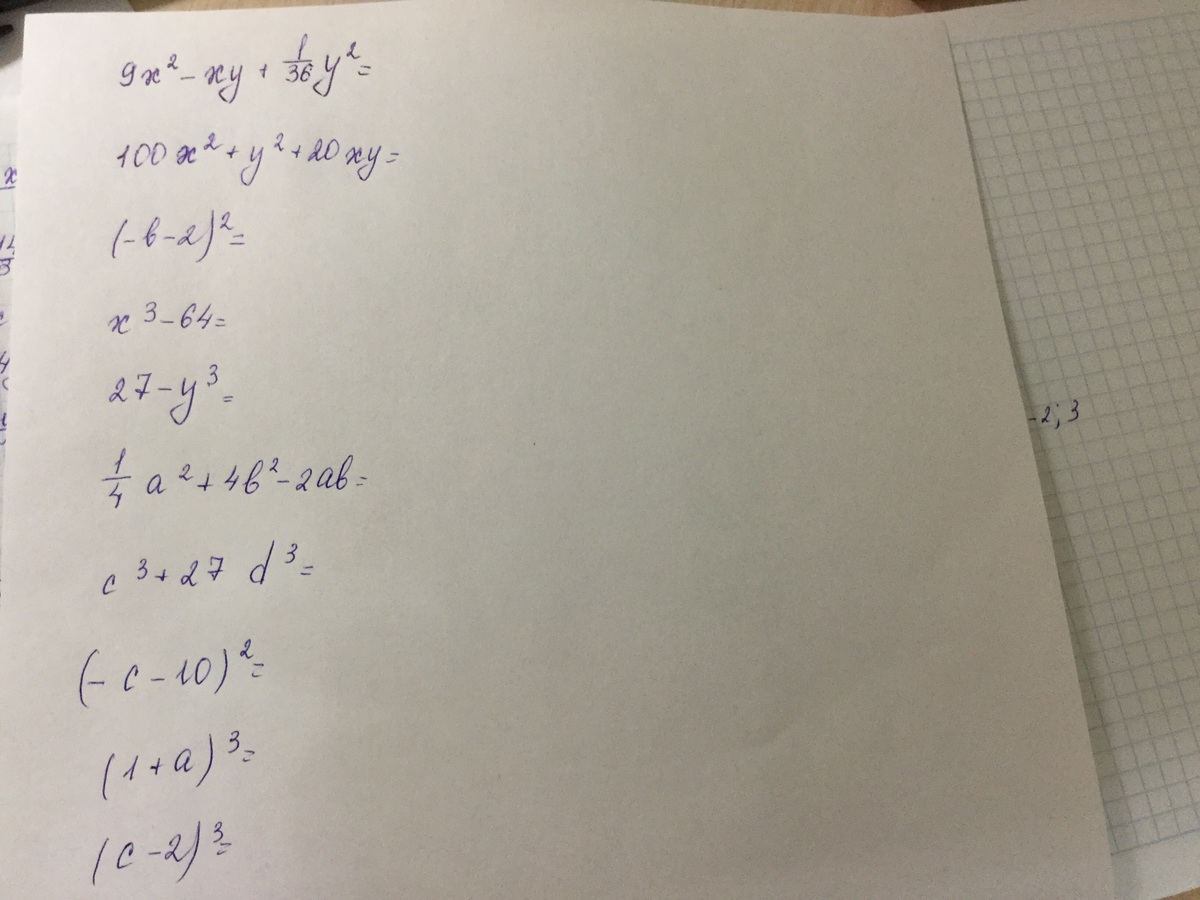 9x² - xy + 1/36 y² =
100x² + y² + 20xy =
(-b-2)² =
x³ - 64 =
27 - y³ =
1/4 a² + 4b² - 2ab =
c³ + 27 d³ =
(- c - 10)² =
(1 + a)³ =
(c - 2)³ =
-2; 3